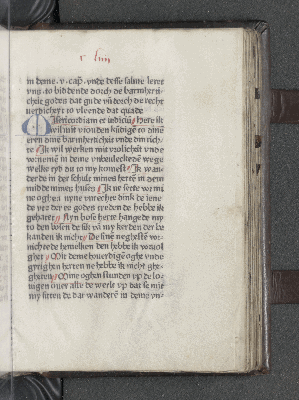 in deme · v · cap · vnde desse salme leret
vns to biddende dorch de barmher-
cheit godes dat gude vñ dorch de recht
uerdicheyt to vleende dat quade
Misericordiam et iudiciũ Here ik
wil mit vrouden kũdigẽ to dinẽ
eren dine barmherticheit vnde din rich-
te Ik wil werken mit vrolicheit vnde
vornemẽ in deme vnbeulecktẽ wege
welke tyd du to my kumpst Ik wan-
der de in der schult mines herten in dem
middel mines huses Ik ne sette vor mi
ne oghen nyne vnrechte dink de iene
de vor der ee godes treden de hebbe ik
gehatet Nyn bose herte hangede my
to den bosen de sik vã my kerden der be
kande ik nicht De sinẽ neghesten vor-
richtede hemeliken den hebbe ik voruol
ghet Mit deme houerdigen oghe vnde
gyrighen herten ne hebbe ik nicht ghe-
gheten Mine oghen stunden vp de lo-
uigen ouer alle de werlt vp dat se mit
my sitten de dar wanderẽ in deme vn-